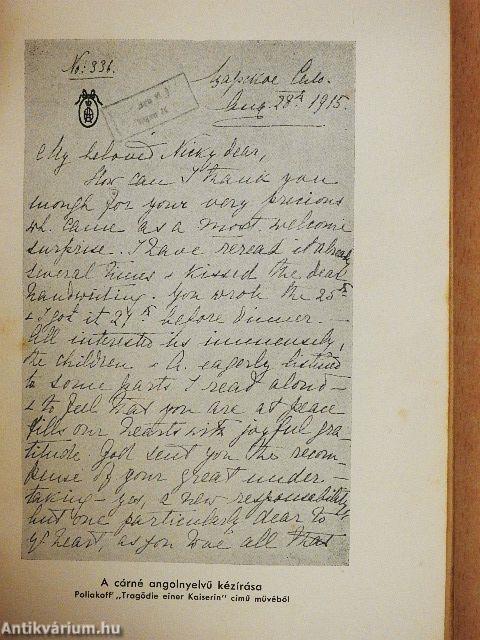 No: 336.
Царское Село.
Aug. 28th 1915
My beloved Nicky dear,
How can I thank you
enough for your very precious
wh. came as a most welcome
surprise. I have reread it already
several times & kissed the dear
handwriting. You wrote the 25th
& I got it 27th before dinner. —
All interested us immensely,
the children & A. eagerly listened
to some parts I read aloud —
& to feel that you are at peace
fills our hearts with joyful gra-
titude. God sent you the recom-
pense of your great under-
taking — yes, a new responsability
but one particularly dear to
yr heart, as you love all that
A cárné angolnyelvű kézírása
Poliakoff "Tragödie einer Kaiserin" című művéből
Antikvárium.hu